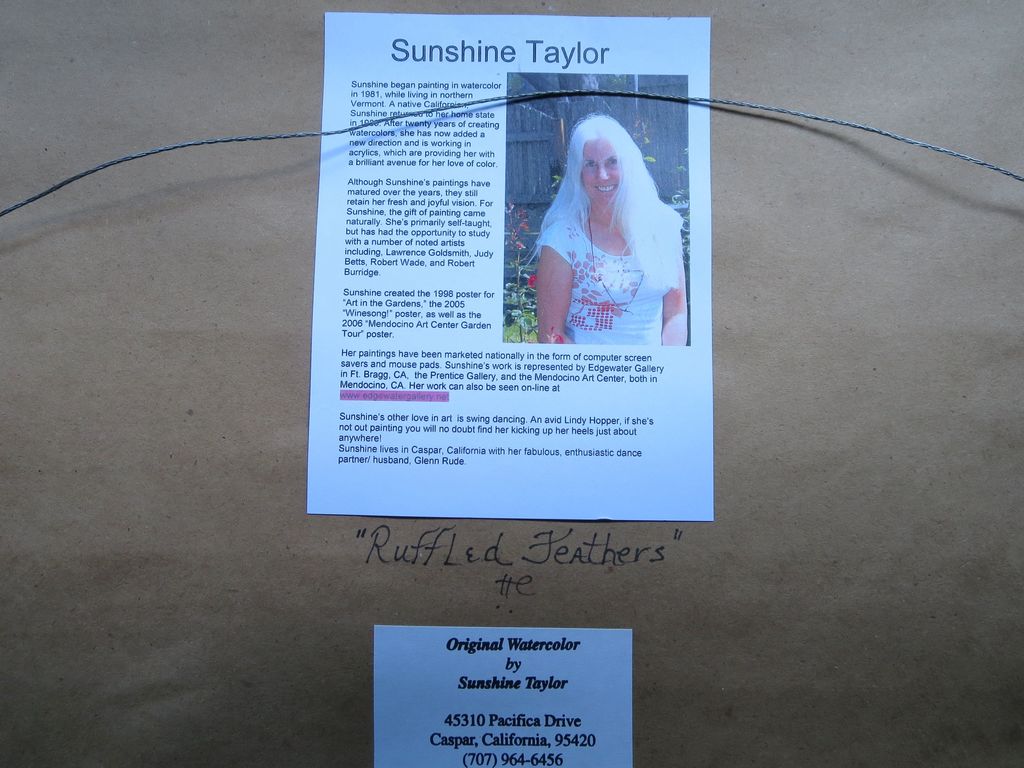 Sunshine Taylor
Sunshine began painting in watercolor
in 1981, while living in northern
Vermont. A native Californian,
Sunshine returned to her home state
in After twenty years of creating
watercolors, she has now added a
new direction and is working in
acrylics, which are providing her with
a brilliant avenue for her love of color.
Although Sunshine's paintings have
matured over the years, they still
retain her fresh and joyful vision. For
Sunshine, the gift of painting came
naturally. She's primarily self-taught,
but has had the opportunity to study
with a number of noted artists
including, Lawrence Goldsmith, Judy
Betts, Robert Wade, and Robert
Burridge.
Sunshine created the 1998 poster for
"Art in the Gardens," the 2005
"Winesong!" poster, as well as the
2006 "Mendocino Art Center Garden
Tour" poster.
Her paintings have been marketed nationally in the form of computer screen
savers and mouse pads. Sunshine's work is represented by Edgewater Gallery
in Ft. Bragg, CA, the Prentice Gallery, and the Mendocino Art Center, both in
Mendocino, CA. Her work can also be seen on-line at
www.edgewatergallery.net
Sunshine's other love in art is swing dancing. An avid Lindy Hopper, if she's
not out painting you will no doubt find her kicking up her heels just about
anywhere!
Sunshine lives in Caspar, California with her fabulous, enthusiastic dance
partner/ husband, Glenn Rude.
"Ruffled Feathers"
Original Watercolor
by
Sunshine Taylor
45310 Pacifica Drive
Caspar, California, 95420
(707) 964-6456